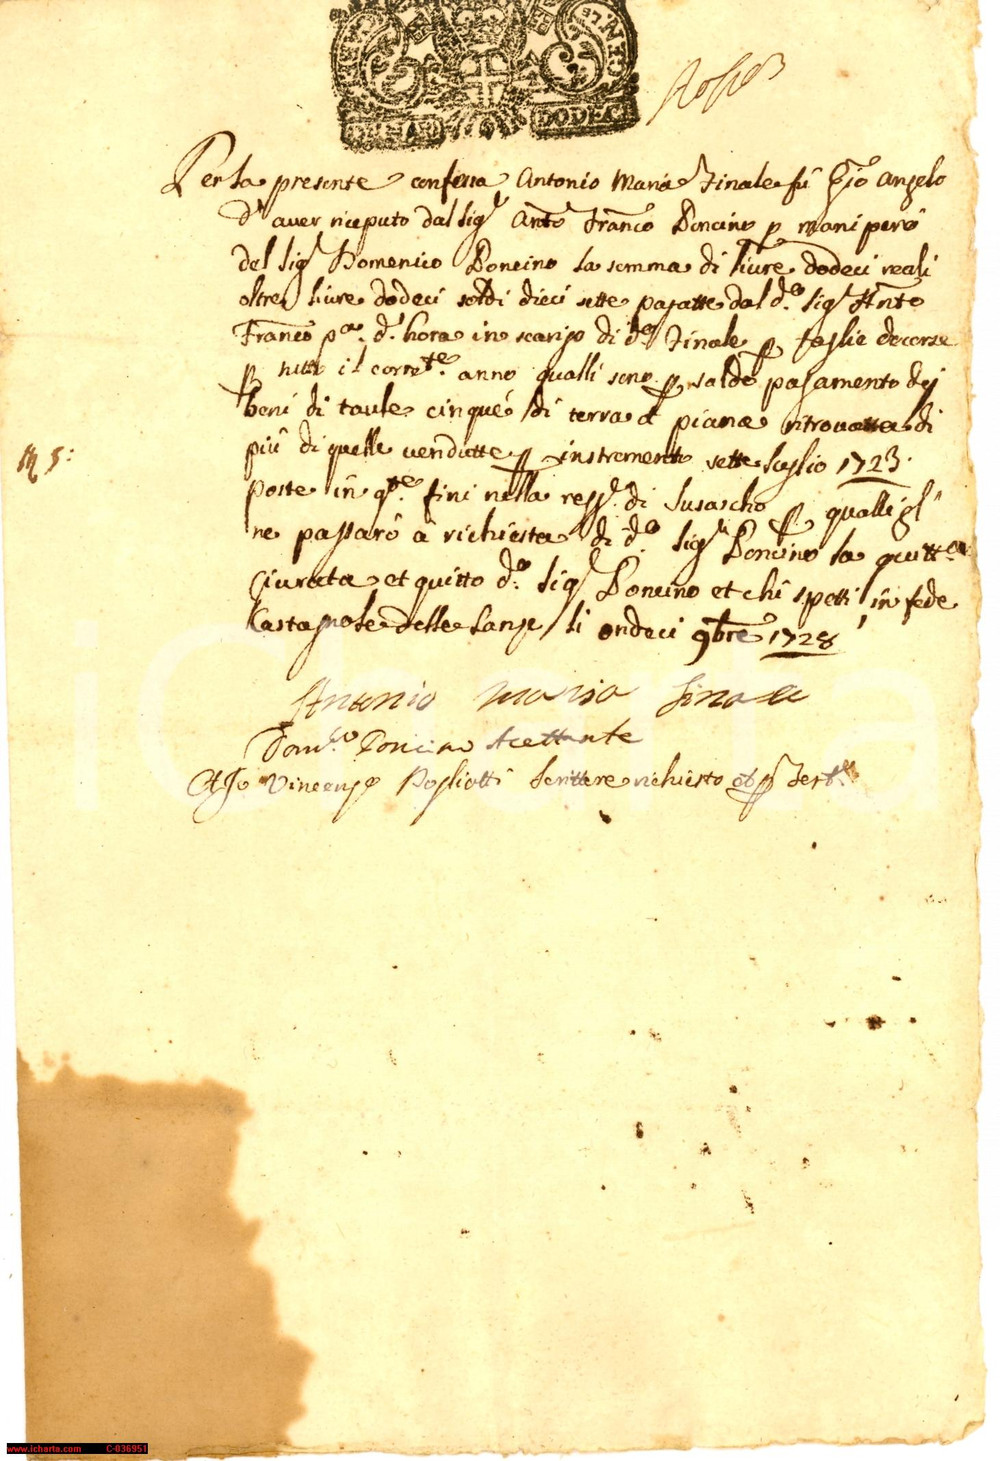 Per la presente confessa Antonio Maria Finale fu Gio Angelo
d'aver riceputo dal Sig.r Ant.o Franc.o Poncino p mani perō
del Sig.r Domenico Poncino la somma di livre dodeci reali
oltre livre dodeci soldi dieci sette pagatte dal d.o Sig.r Ant.o
Franc.o p.a d' hora in scarigo di d.o Finale p taglie decorse
p tutto il corr.te anno qualli sono p saldo pagamento dej
beni di taule cinque di terra piana ritrovatta di
più di quelle vendutte p instremento sette luglio 1723.
poste in q.te fini nella reg. di Susascho p. qualli gl'
ne passarō à richiesta di d.o Sig.r Poncino la quitt.a
giurata et quitto d.o Sig.r Poncino et chi spetti, in fede
Castagnole delle Lanze li ondeci 9bre 1728
Antonio Maria Finale
Dom.co Poncino Acettante
Et Io Vincenzo Pogliotti scrittore richiesto et p Test.o
www.icharta.com C-036951